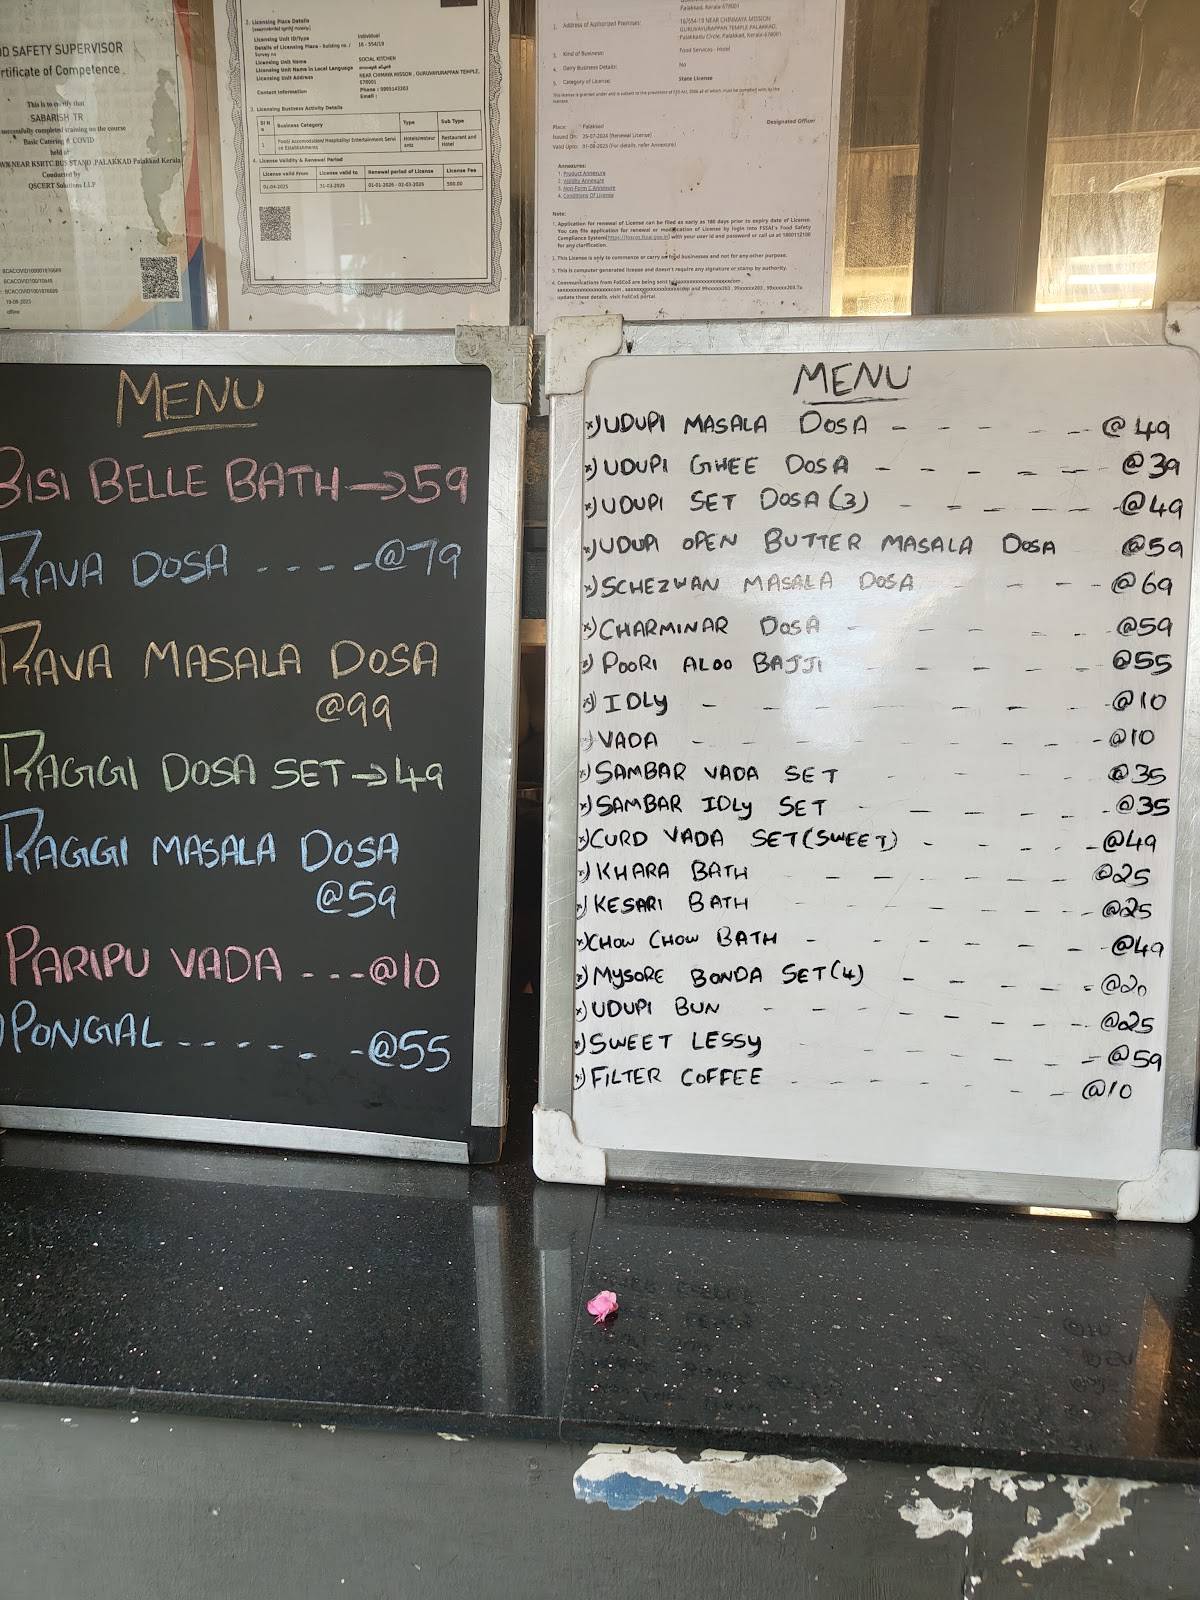 D SAFETY SUPERVISOR
rtificate of Competence
This is to certify that
SABARISH TR
successfully completed training on the course
Basic Catering & COVID
held at
NEAR KSRTC BUS STAND ,PALAKKAD Palakkad Kerala
Conducted by
QSCERT Solutions LLP
19-08-2023
offline
2. Licensing Place Details
Licensing Unit ID/Type Individual
Details of Licensing Place - building no./ Survey no 16 - 554/19
Licensing Unit Name SOCIAL KITCHEN
Licensing Unit Name in Local Language
Licensing Unit Address NEAR CHIMAYA MISSON , GURUVAYURAPPAN TEMPLE,
678001
Contact Information Phone : 9995143203
Email :
3. Licensing Business Activity Details
Sl No Business Category Type Sub Type
1 Food/ Accomodation/ Hospitality/ Entertainment Service Establishments Hotels/restaurants Restaurant and Hotel
4. License Validity & Renewal Period
License valid From License valid to Renewal period of License License Fee
01-04-2025 31-03-2026 01-01-2026 - 02-03-2026 500.00
Palakkad, Kerala-678001
2. Address of Authorized Premises: 16/554-19 NEAR CHINMAYA MISSION
GURUVAYURAPPAN TEMPLE PALAKKAD,
Palakkadu Circle, Palakkad, Kerala-678001
3. Kind of Business: Food Services - Hotel
4. Dairy Business Details: No
5. Category of License: State License
This license is granted under and is subject to the provisions of FSS Act, 2006 all of which must be complied with by the licensee.
Place: Palakkad
Designated Officer
Issued On: 26-07-2024 (Renewal License)
Valid Upto: 01-08-2025 (For details, refer Annexure)
Annexures:
1. Product Annexure
2. Validity Annexure
3. Non-Form C Annexure
4. Conditions Of License
Note:
1. Application for renewal of License can be filed as early as 180 days prior to expiry date of License.
You can file application for renewal or modification of License by login into FSSAI's Food Safety
Compliance System[https://foscos.fssai.gov.in] with your user id and password or call us at 1800112100
for any clarification.
2. This License is only to commence or carry on food businesses and not for any other purpose.
3. This is computer generated license and doesn't require any signature or stamp by authority.
4. Communications from FoSCoS are being sent to
update these details, visit FoSCoS portal.
MENU
BISI BELLE BATH → 59
RAVA DOSA ---- @79
RAVA MASALA DOSA
@99
RAGGI DOSA SET → 49
RAGGI MASALA DOSA
@59
PARIPU VADA --- @10
PONGAL ------ @55
MENU
*) UDUPI MASALA DOSA ----- @49
*) UDUPI GHEE DOSA ------ @39
*) UDUPI SET DOSA (3) ------ @49
*) UDUPI OPEN BUTTER MASALA DOSA @59
*) SCHEZWAN MASALA DOSA ----- @69
*) CHARMINAR DOSA ------ @59
*) POORI ALOO BAJJI ------ @55
*) IDLY -------- @10
*) VADA -------- @10
*) SAMBAR VADA SET ----- @35
*) SAMBAR IDLY SET ----- @35
*) CURD VADA SET (SWEET) ----- @49
*) KHARA BATH ------ @25
*) KESARI BATH ------ @25
*) CHOW CHOW BATH ------ @49
*) MYSORE BONDA SET (4) ----- @20
*) UDUPI BUN -------- @25
*) SWEET LESSY -------- @59
*) FILTER COFFEE ------- @10